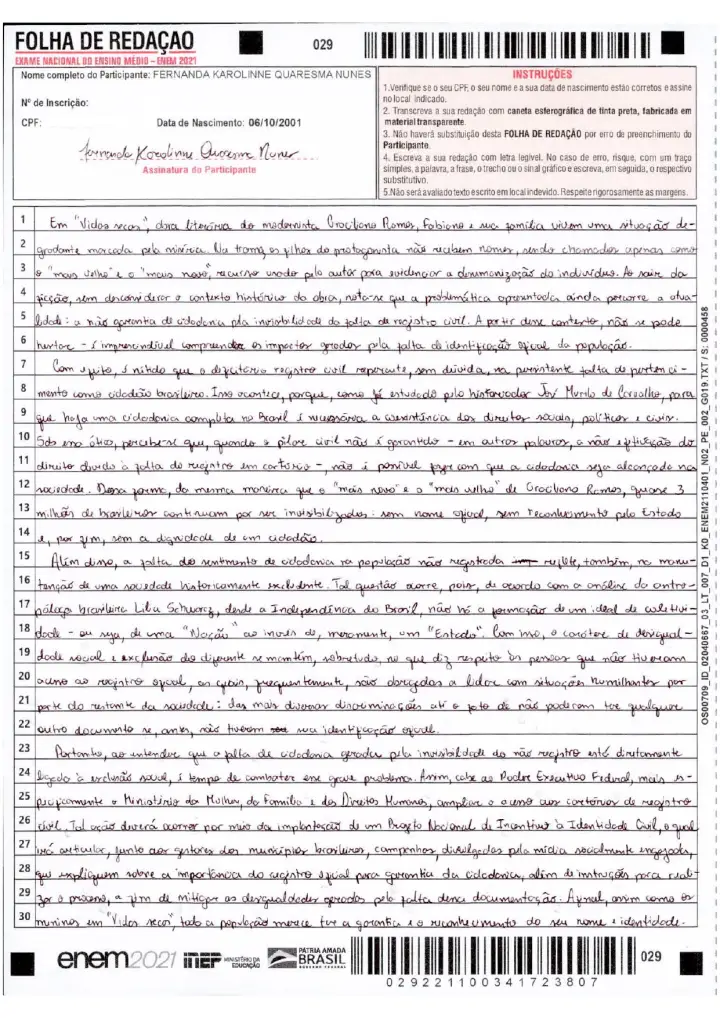 FOLHA DE REDAÇÃO
EXAME NACIONAL DO ENSINO MÉDIO – ENEM 2021
029
Nome completo do Participante: FERNANDA KAROLINNE QUARESMA NUNES
Nº de Inscrição:
CPF: Data de Nascimento: 06/10/2001
Fernanda Karolinne Quaresma Nunes
Assinatura do Participante
INSTRUÇÕES
1.Verifique se o seu CPF, o seu nome e a sua data de nascimento estão corretos e assine
no local indicado.
2. Transcreva a sua redação com caneta esferográfica de tinta preta, fabricada em
material transparente.
3. Não haverá substituição desta FOLHA DE REDAÇÃO por erro de preenchimento do
Participante.
4. Escreva a sua redação com letra legível. No caso de erro, risque, com um traço
simples, a palavra, a frase, o trecho ou o sinal gráfico e escreva, em seguida, o respectivo
substitutivo.
5.Não será avaliado texto escrito em local indevido. Respeite rigorosamente as margens.
1 Em "Vidas secas", obra literária do modernista Graciliano Ramos, Fabiano e sua família vivem uma situação de-
2 gradante marcada pela miséria. Na trama, os filhos do protagonista não recebem nomes, sendo chamados apenas como
3 o "mais velho" e o "mais novo", recurso usado pelo autor para evidenciar a desumanização do indivíduo. Ao sair da
4 ficção, sem desconsiderar o contexto histórico da obra, nota-se que a problemática apresentada ainda percorre a atua-
5 lidade: a não garantia de cidadania pela invisibilidade da falta de registro civil. A partir desse contexto, não se pode
6 hesitar – é imprescindível compreender os impactos gerados pela falta de identificação oficial da população.
7 Com efeito, é nítido que o deficitário registro civil repercute, sem dúvida, na persistente falta de pertenci-
8 mento como cidadão brasileiro. Isso acontece, porque, como já estudado pelo historiador José Murilo de Carvalho, para
9 que haja uma cidadania completa no Brasil é necessária a coexistência dos direitos sociais, políticos e civis.
10 Sob essa ótica, percebe-se que, quando o pilar civil não é garantido – em outras palavras, a não efetivação do
11 direito devido à falta do registro em cartório –, não é possível fazer com que a cidadania seja alcançada na
12 sociedade. Dessa forma, da mesma maneira que o "mais novo" e o "mais velho" de Graciliano Ramos, quase 3
13 milhões de brasileiros continuam por ser invisibilizados: sem nome oficial, sem reconhecimento pelo Estado
14 e, por fim, sem a dignidade de um cidadão.
15 Além disso, a falta do sentimento de cidadania na população não registrada reflete, também, na manu-
16 tenção de uma sociedade historicamente excludente. Tal questão ocorre, pois, de acordo com a análise da antro-
17 póloga brasileira Lilia Schwarcz, desde a Independência do Brasil, não há a formação de um ideal de coletivi-
18 dade – ou seja, de uma "Nação" ao invés de, meramente, um "Estado". Com isso, o caráter de desigual-
19 dade social e exclusão do diferente se mantém, sobretudo, no que diz respeito às pessoas que não tiveram
20 acesso ao registro oficial, as quais, frequentemente, são obrigadas a lidar com situações humilhantes por
21 parte do restante da sociedade: das mais diversas discriminações até o fato de não poderem ter qualquer
22 outro documento se, antes, não tiverem sua identificação oficial.
23 Portanto, ao entender que a falta de cidadania gerada pela invisibilidade do não registro está diretamente
24 ligada à exclusão social, é tempo de combater esse grave problema. Assim, cabe ao Poder Executivo Federal, mais es-
25 pecificamente o Ministério da Mulher, da Família e dos Direitos Humanos, ampliar o acesso aos cartórios de registro
26 civil. Tal ação deverá ocorrer por meio da implantação de um Projeto Nacional de Incentivo à Identidade Civil, o qual
27 irá articular, junto aos gestores dos municípios brasileiros, campanhas, divulgadas pela mídia socialmente engajada,
28 que expliquem sobre a importância do registro oficial para garantia da cidadania, além de instruções para reali-
29 zar o processo, a fim de mitigar as desigualdades geradas pela falta dessa documentação. Afinal, assim como os
30 meninos em "Vidas secas", toda a população merece ter a garantia e o reconhecimento do seu nome e identidade.
OS00709_ID_02040667_03_LT_007_D1_K0_ENEM2110401_N02_PE_002_G019.TXT / S: 0000458
enem2021 inep MINISTÉRIO DA EDUCAÇÃO PÁTRIA AMADA BRASIL GOVERNO FEDERAL
029
029221100341723807